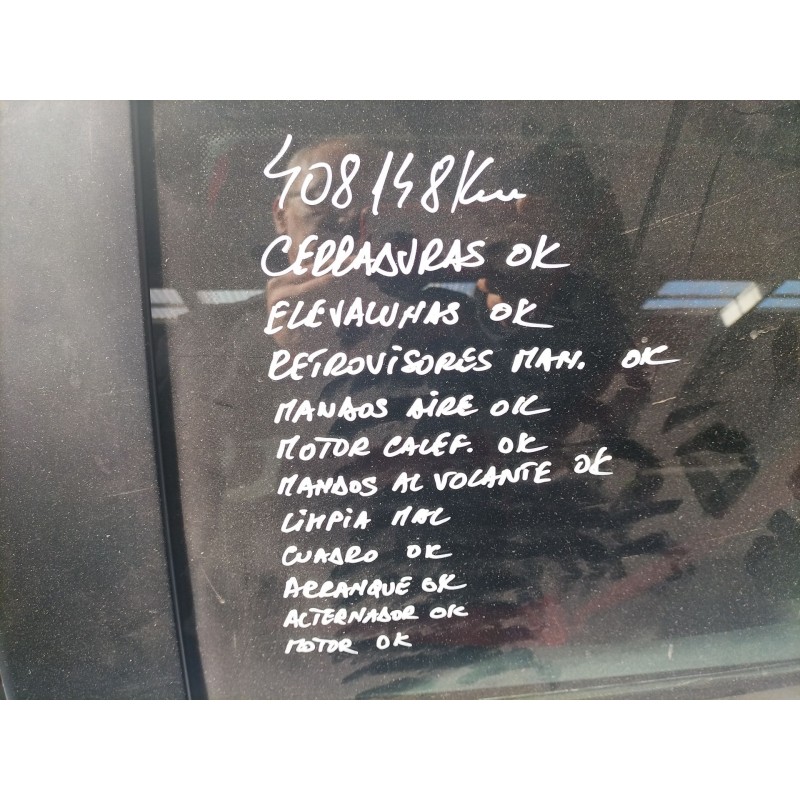 408148 Km
CERRADURAS OK
ELEVALUNAS OK
RETROVISORES MAN. OK
MANDOS AIRE OK
MOTOR CALEF. OK
MANDOS AL VOLANTE OK
LIMPIA MAL
CUADRO OK
ARRANQUE OK
ALTERNADOR OK
MOTOR OK